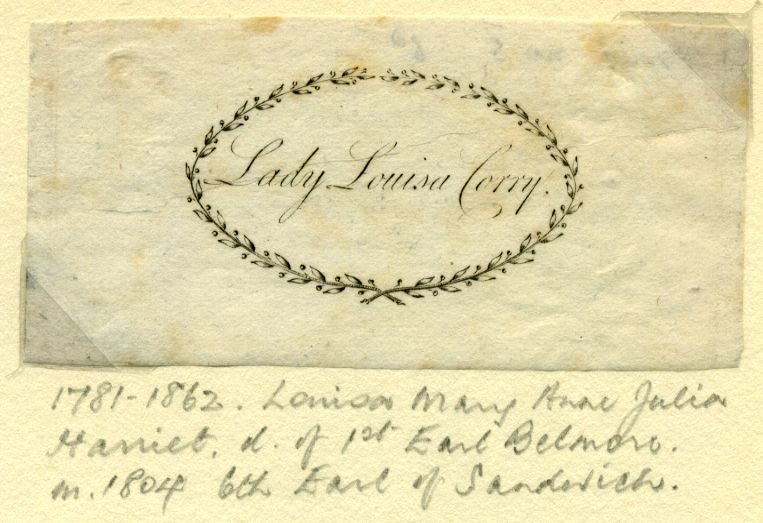 Lady Louisa Corry.
1781-1862. Louisa Mary Anne Julia
Harriet. d. of 1st Earl Belmore.
m. 1804 6th Earl of Sandwich.